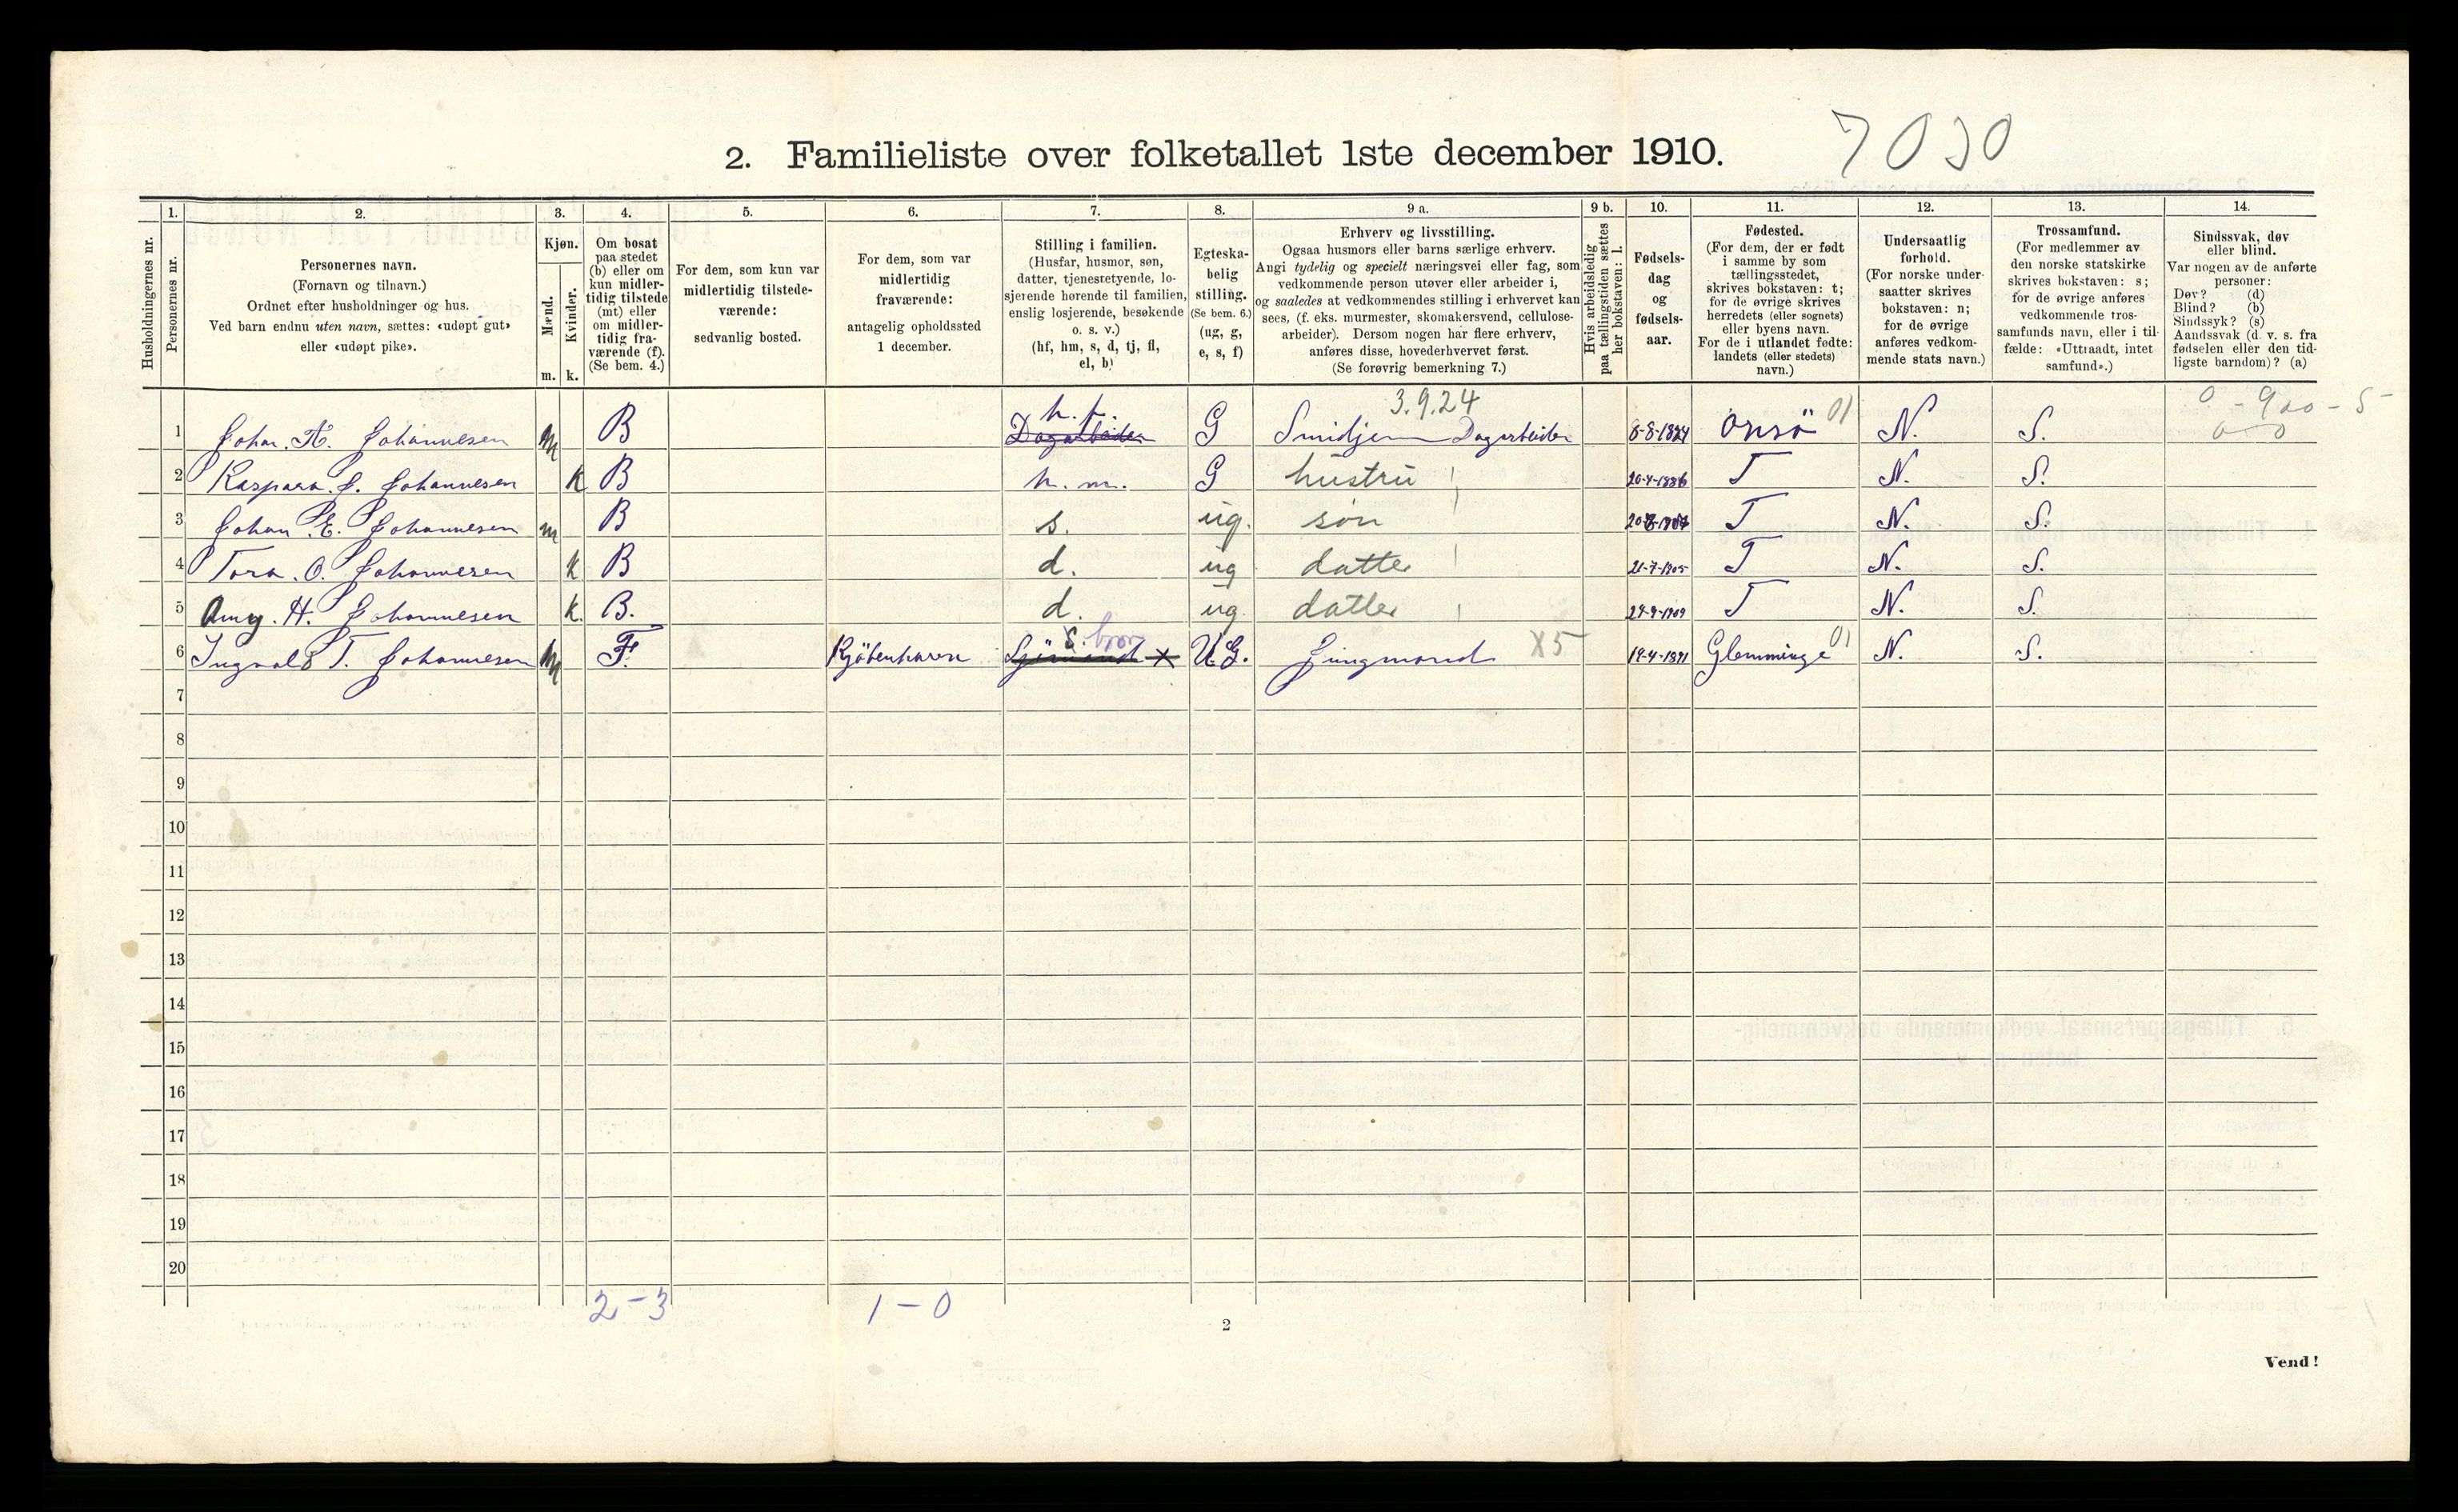 7030
2. Familieliste over folketallet 1ste december 1910.
Husholdningernes nr.
1. Personernes nr.
2. Personernes navn.
(Fornavn og tilnavn.)
Ordnet efter husholdninger og hus.
Ved barn endnu uten navn, sættes: «udøpt gut»
eller «udøpt pike».
3. Kjøn.
Mænd. m.
Kvinder. k.
4. Om bosat
paa stedet
(b) eller om
kun midler-
tidig tilstede
(mt) eller
om midler-
tidig fra-
værende (f).
(Se bem. 4.)
5. For dem, som kun var
midlertidig tilstede-
værende:
sedvanlig bosted.
6. For dem, som var
midlertidig
fraværende:
antagelig opholdssted
1 december.
7. Stilling i familien.
(Husfar, husmor, søn,
datter, tjenestetyende, lo-
sjerende hørende til familien,
enslig losjerende, besøkende
o. s. v.)
(hf, hm, s, d, tj, fl,
el, b)
8. Egteska-
belig
stilling.
(Se bem. 6.)
(ug, g,
e, s, f)
9 a. Erhverv og livsstilling.
Ogsaa husmors eller barns særlige erhverv.
Angi tydelig og specielt næringsvei eller fag, som
vedkommende person utøver eller arbeider i,
og saaledes at vedkommendes stilling i erhvervet kan
sees, (f. eks. murmester, skomakersvend, cellulose-
arbeider). Dersom nogen har flere erhverv,
anføres disse, hovederhvervet først.
(Se forøvrig bemerkning 7.)
9 b. Hvis arbeidsledig
paa tællingstiden sættes
her bokstaven: l.
10. Fødsels-
dag
og
fødsels-
aar.
11. Fødested.
(For dem, der er født
i samme by som
tællingsstedet,
skrives bokstaven: t;
for de øvrige skrives
herredets (eller sognets)
eller byens navn.
For de i utlandet fødte:
landets (eller stedets)
navn.)
12. Undersaatlig
forhold.
(For norske under-
saatter skrives
bokstaven: n;
for de øvrige
anføres vedkom-
mende stats navn.)
13. Trossamfund.
(For medlemmer av
den norske statskirke
skrives bokstaven: s;
for de øvrige anføres
vedkommende tros-
samfunds navn, eller i til-
fælde: «Uttraadt, intet
samfund».)
14. Sindssvak, døv
eller blind.
Var nogen av de anførte
personer:
Døv? (d)
Blind? (b)
Sindssyk? (s)
Aandssvak (d. v. s. fra
fødselen eller den tid-
ligste barndom)? (a)
h. f. 3.9.24 0 - 900 - 5
1 Johan. K. Johannesen m B Dagarbeider G Smidjem Dagarbeider Onsö 01 N. S. 0 0
2 Kaspara. J. Johannesen K B h. m. G hustru 20-4-1886 T N. S.
3 Johan E. Johannesen m B s. ug. søn T N. S.
4 Tora. O. Johannesen k B d. ug datter 21-7-1905 T N. S.
5 Amy. H. Johannesen k. B. d. ug. datter 29-9-1909 T N. S.
s.
6 Ingvald T. Johannesen m F. Kjöbenhavn Sjömand x U.G. Jungmand X5 19-4-1891 Glemminge 01 N. S.
7
8
9
10
11
12
13
14
15
16
17
18
19
20
2-3 1-0
2
Vend!